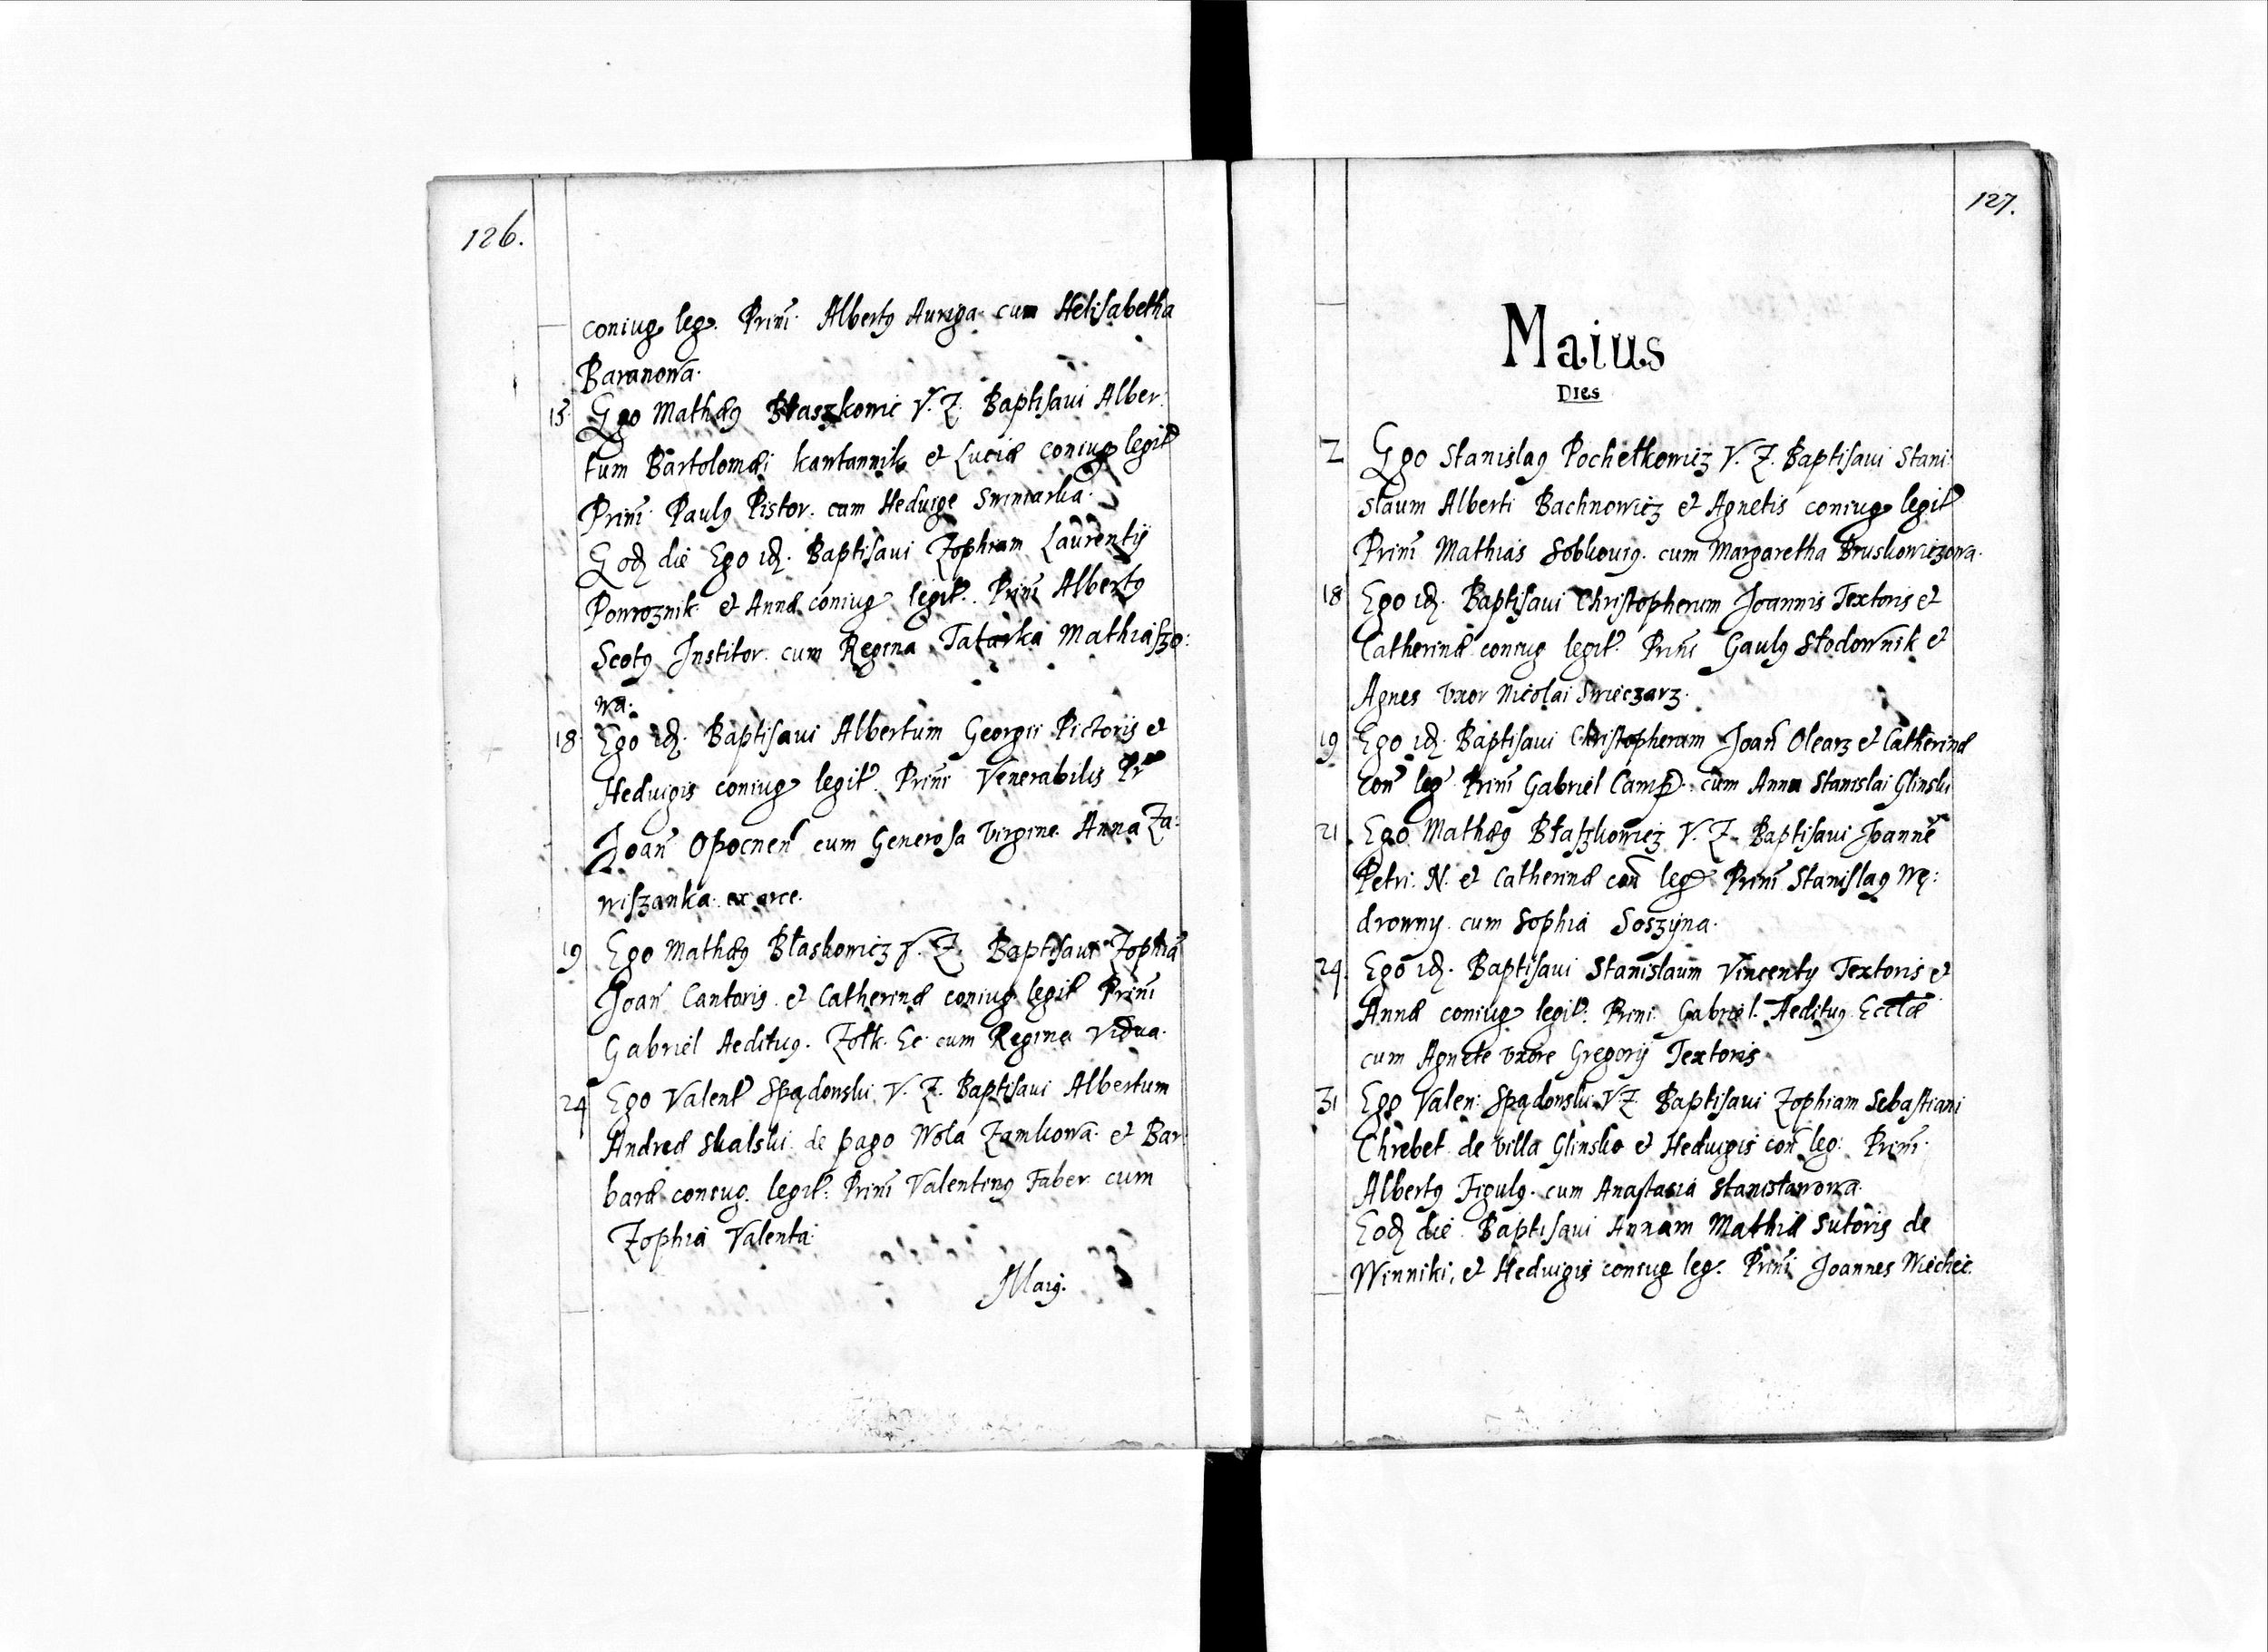 126.
coniug leg. Prini Albertꝰ Auriga cum Helisabetha
Baranowa.
15. Ego Mathæꝰ Błaszkowic V. Z. Baptisaui Alber:
tum Bartolomæi kantannik et Luciæ coniug legit
Prini Paulꝰ Pistor. cum Heduige Swiniarka.
Eod die Ego id. Baptisaui Zophiam Laurentij
Powroznik et Annæ coniug legit. Prini Albertꝰ
Scotꝰ Institor cum Regina Tatarka Mathiaszo:
wa.
18 Ego id. Baptisaui Albertum Georgii Pictoris et
Heduigis coniug legit. Prini Venerabilis Pr
Joan Opocnen cum Generosa virgine Anna Za:
wiszanka ex arce.
19 Ego Mathæꝰ Błaskowicz V. Z. Baptisaui Zophiā
Joan Cantoris et Catherinæ coniug legit Prini
Gabriel Aedituꝰ. Zołk. Ec. cum Regina vidua.
24 Ego Valent Spądonski V. Z. Baptisaui Albertum
Andreæ Skalski de pago Wola Zamkowa et Bar
baræ coniug. legit: Prini Valentinꝰ Faber cum
Zophia Valenta.
Maiꝰ.
127.
Maius
Dies
2 Ego Stanislaꝰ Pochetkowicz V. Z. Baptisaui Stani:
slaum Alberti Bachnowicz et Agnetis coniug legit
Prini Mathias Sobkouiꝰ. cum Margaretha Bruskowiczowa.
18 Ego id. Baptisaui Christopherum Joannis Textoris et
Catherinæ coniug legit. Prini Gaulꝰ Słodownik et
Agnes vxor Nicolai Swieczarz.
19 Ego id. Baptisaui Christopherum Joan Olearz et Catherinæ
con leg Prini Gabriel Camp. cum Anna Stanislai Glinski
21. Ego Mathæꝰ Błaszkowicz V. Z. Baptisaui Joannē
Petri. N. et Catherinæ con leg Prini Stanislaꝰ Wę:
drowny. cum Sophia Soszyna.
24. Ego id. Baptisaui Stanislaum Vincenty Textoris et
Annæ coniug legit. Prini Gabriel Aedituꝰ Eccłæ
cum Agnete vxore Gregorij Textoris
31 Ego Valen: Spądonski V Z Baptisaui Zophiam Sebastiani
Chrebet de villa Glinsko et Heduigis con leg: Prini
Albertꝰ Figulꝰ. cum Anastasia Stanisławowa.
Eod die Baptisaui Annam Mathiæ Sutoris de
Winniki, et Heduigis coniug leg. Prini Joannes Wiechec.